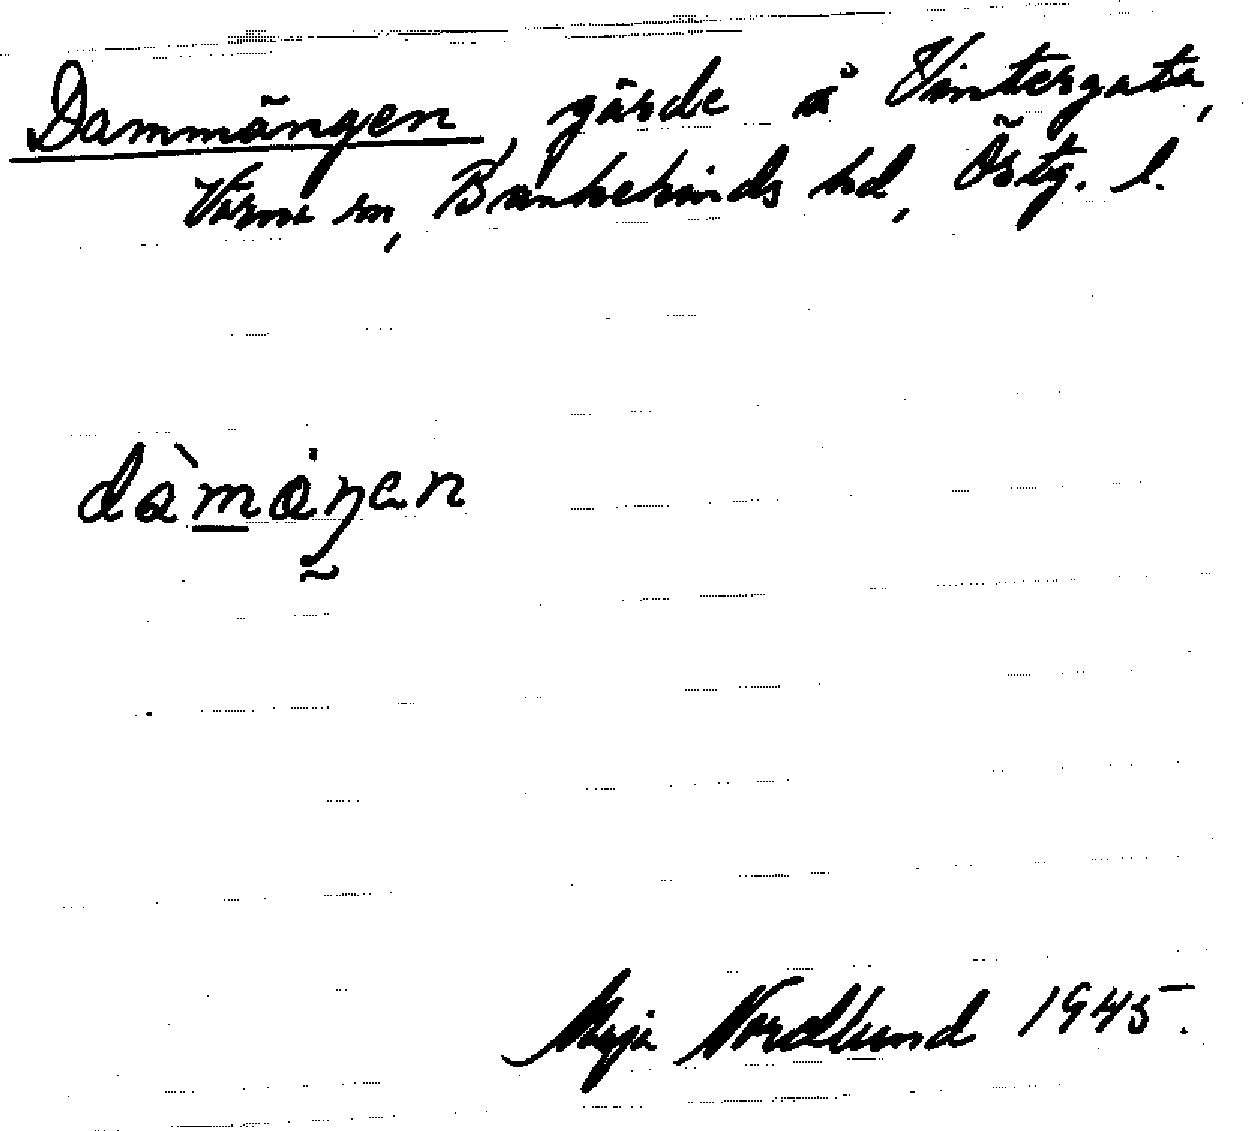 Dammängen, gärde å Vintergata,
Värna sn, Bankekinds hd, Östg. l.
dàmȧŋen
Maja Nordlund 1945.